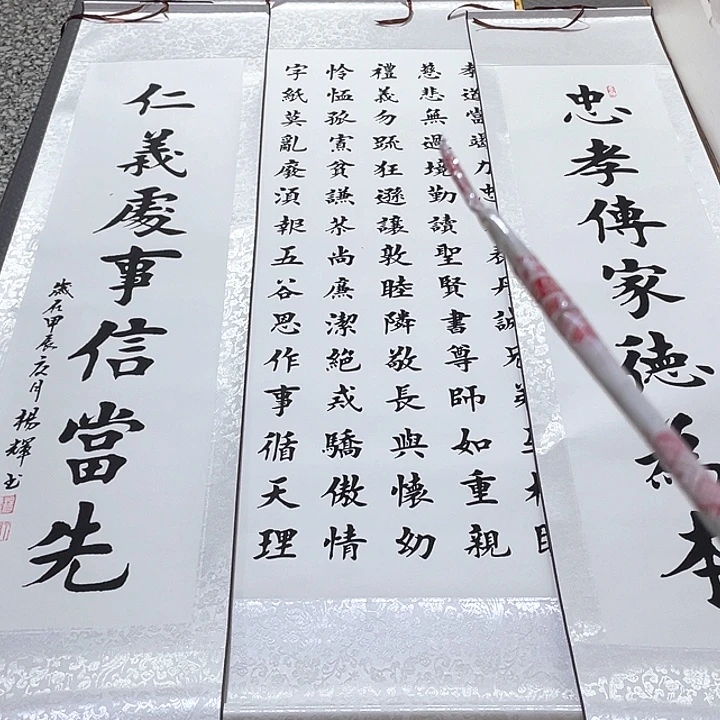 忠孝傳家德為本
孝道當竭力忠表丹誠兄弟互相
慈悲無過境勤讀聖賢書尊師如重親
禮義勿疏狂遜讓敦睦隣敬長與懷幼
怜恤孤寡貧謙恭尚廉潔絕戒驕傲情
字紙莫亂廢須報五谷恩作事循天理
仁義處事信當先
歲在甲辰月楊輝书